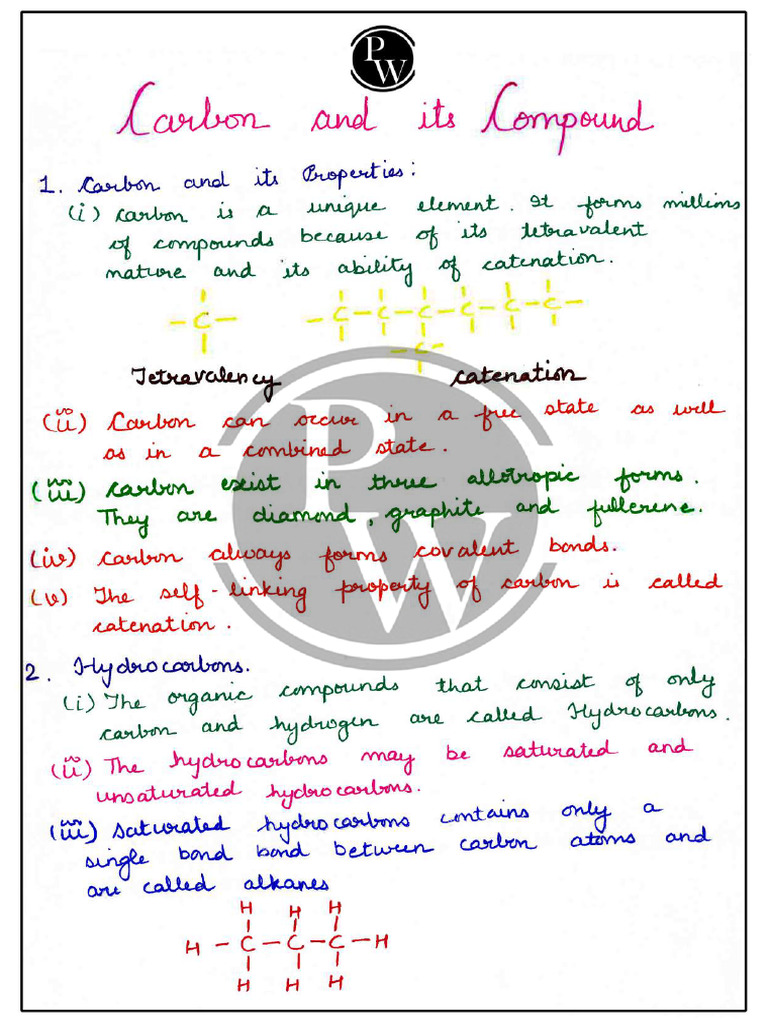 PW
Carbon and its Compound
1. Carbon and its Properties:
(i) Carbon is a unique element. It forms millions
of compounds because of its tetravalent
nature and its ability of catenation.
-C- -C-C-C-C-C-C-
-C-
Tetravalency catenation
(ii) Carbon can occur in a free state as well
as in a combined state.
(iii) Carbon exist in three allotropic forms.
They are diamond, graphite and fullerene.
(iv) Carbon always forms covalent bonds.
(v) The self-linking property of carbon is called
catenation.
2. Hydrocarbons.
(i) The organic compounds that consist of only
carbon and hydrogen are called Hydrocarbons.
(ii) The hydrocarbons may be saturated and
unsaturated hydrocarbons.
(iii) saturated hydrocarbons contains only a
single bond bond between carbon atoms and
are called alkanes
H H H
H - C - C - C - H
H H H